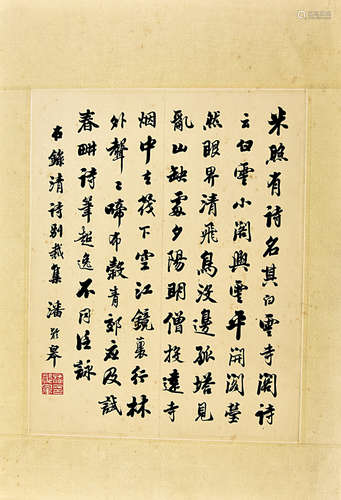 朱照有詩名其白雲寺閣詩
云白雲小閣與雲平開閣蒼
然眼界清飛鳥没邊孤塔見
亂山缺處夕陽明僧投遠寺
烟中去筏下空江鏡裏行林
外聲聲啼布穀青郊應及試
春畊詩筆超逸不同泛詠
右錄清詩別裁集 潘齡皋